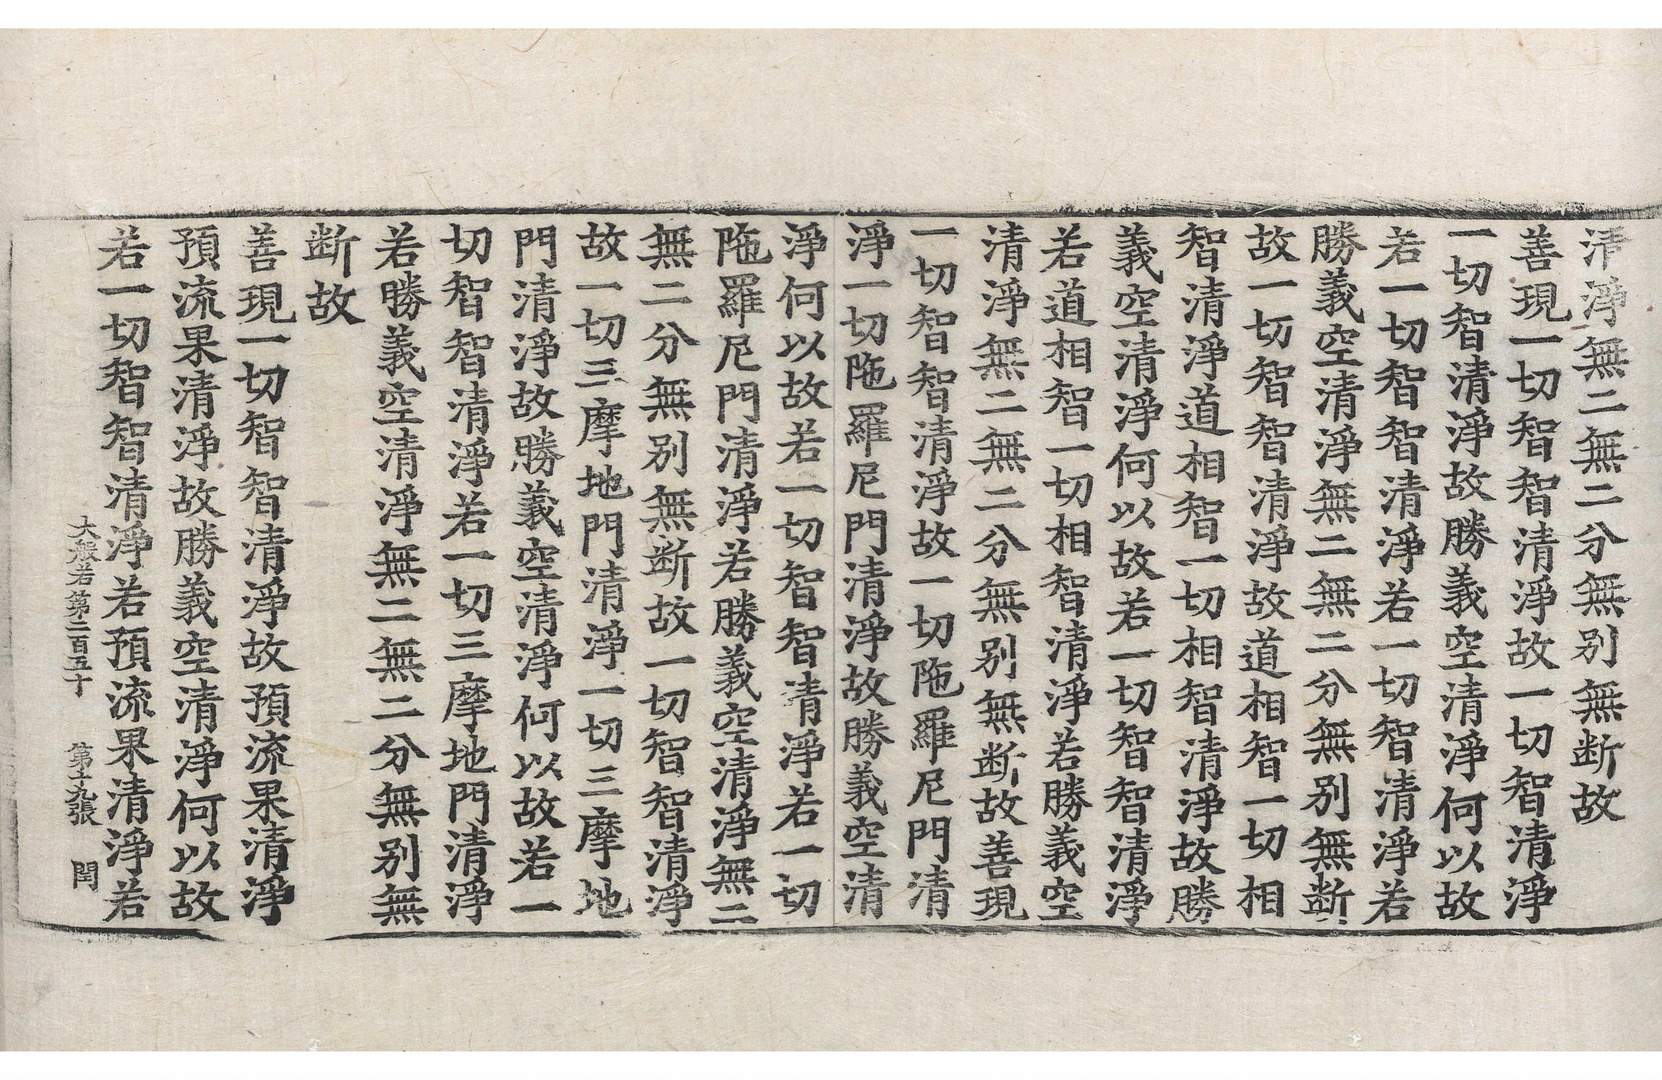 清淨無二無二分無別無断故
善現一切智智清淨故一切智清淨
一切智清淨故勝義空清淨何以故
若一切智智清淨若一切智清淨若
勝義空清淨無二無二分無別無断
故一切智智清淨故道相智一切相
智清淨道相智一切相智清淨故勝
義空清淨何以故若一切智智清淨
若道相智一切相智清淨若勝義空
清淨無二無二分無別無断故善現
一切智智清淨故一切陁羅尼門清
淨一切陁羅尼門清淨故勝義空清
淨何以故若一切智智清淨若一切
陁羅尼門清淨若勝義空清淨無二
無二分無別無断故一切智智清淨
故一切三摩地門清淨一切三摩地
門清淨故勝義空清淨何以故若一
切智智清淨若一切三摩地門清淨
若勝義空清淨無二無二分無別無
断故
善現一切智智清淨故預流果清淨
預流果清淨故勝義空清淨何以故
若一切智智清淨若預流果清淨若
大般若第二百五十 第十九張 閏